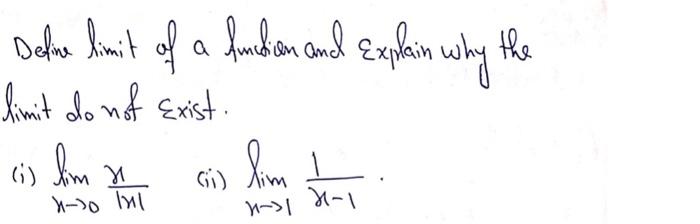 Define limit of a function and Explain why the
limit do not Exist.
(i) lim x→0 x/|x| (ii) lim x→1 1/x-1 .